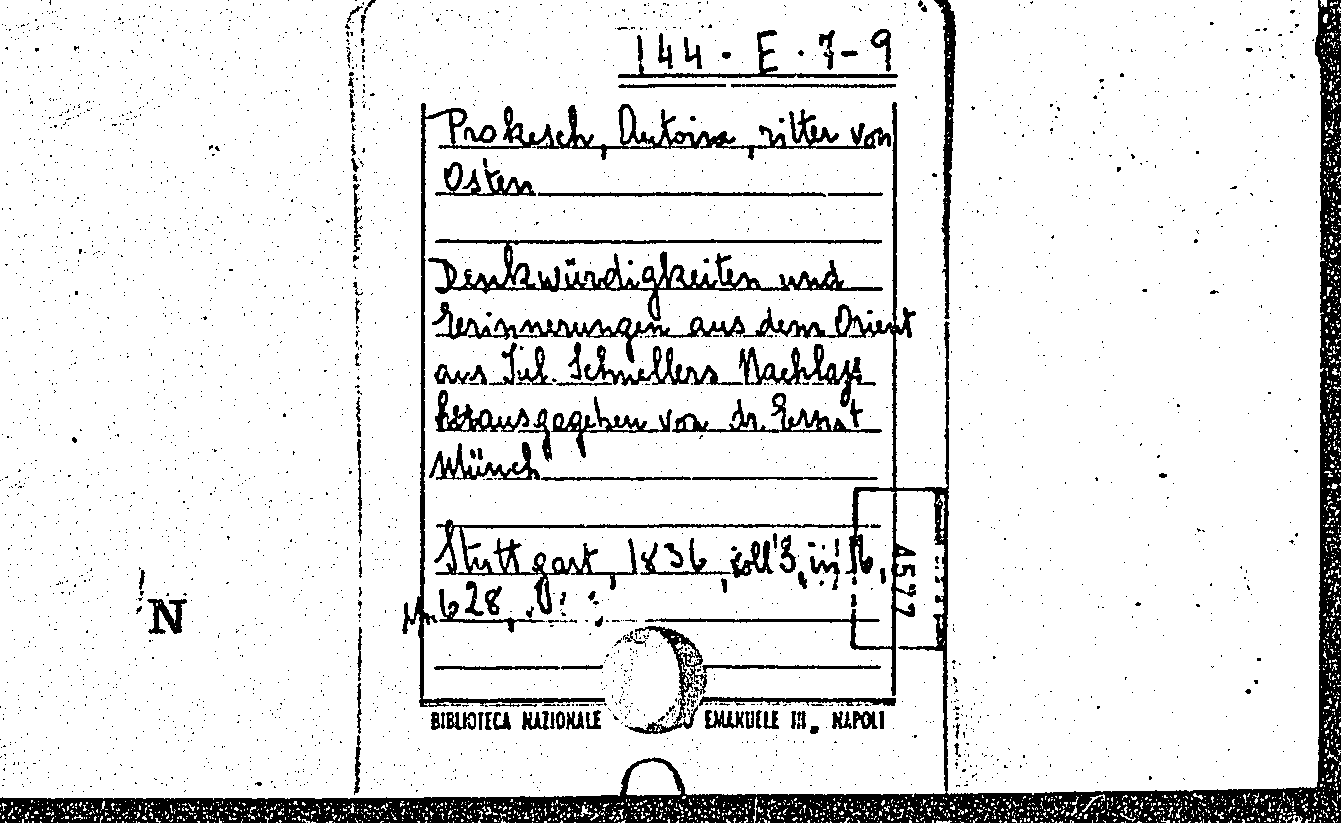 144 · E · 7-9
Prokesch, Antoine, ritter von
Osten
Denkwürdigkeiten und
Erinnerungen aus dem Orient
aus Jul. Schnellers Nachlass
herausgegeben von dr. Ernst
Münch
Stuttgart, 1836, voll 3, in 16.
628,
A577
N
BIBLIOTECA NAZIONALE EMANUELE III. NAPOLI